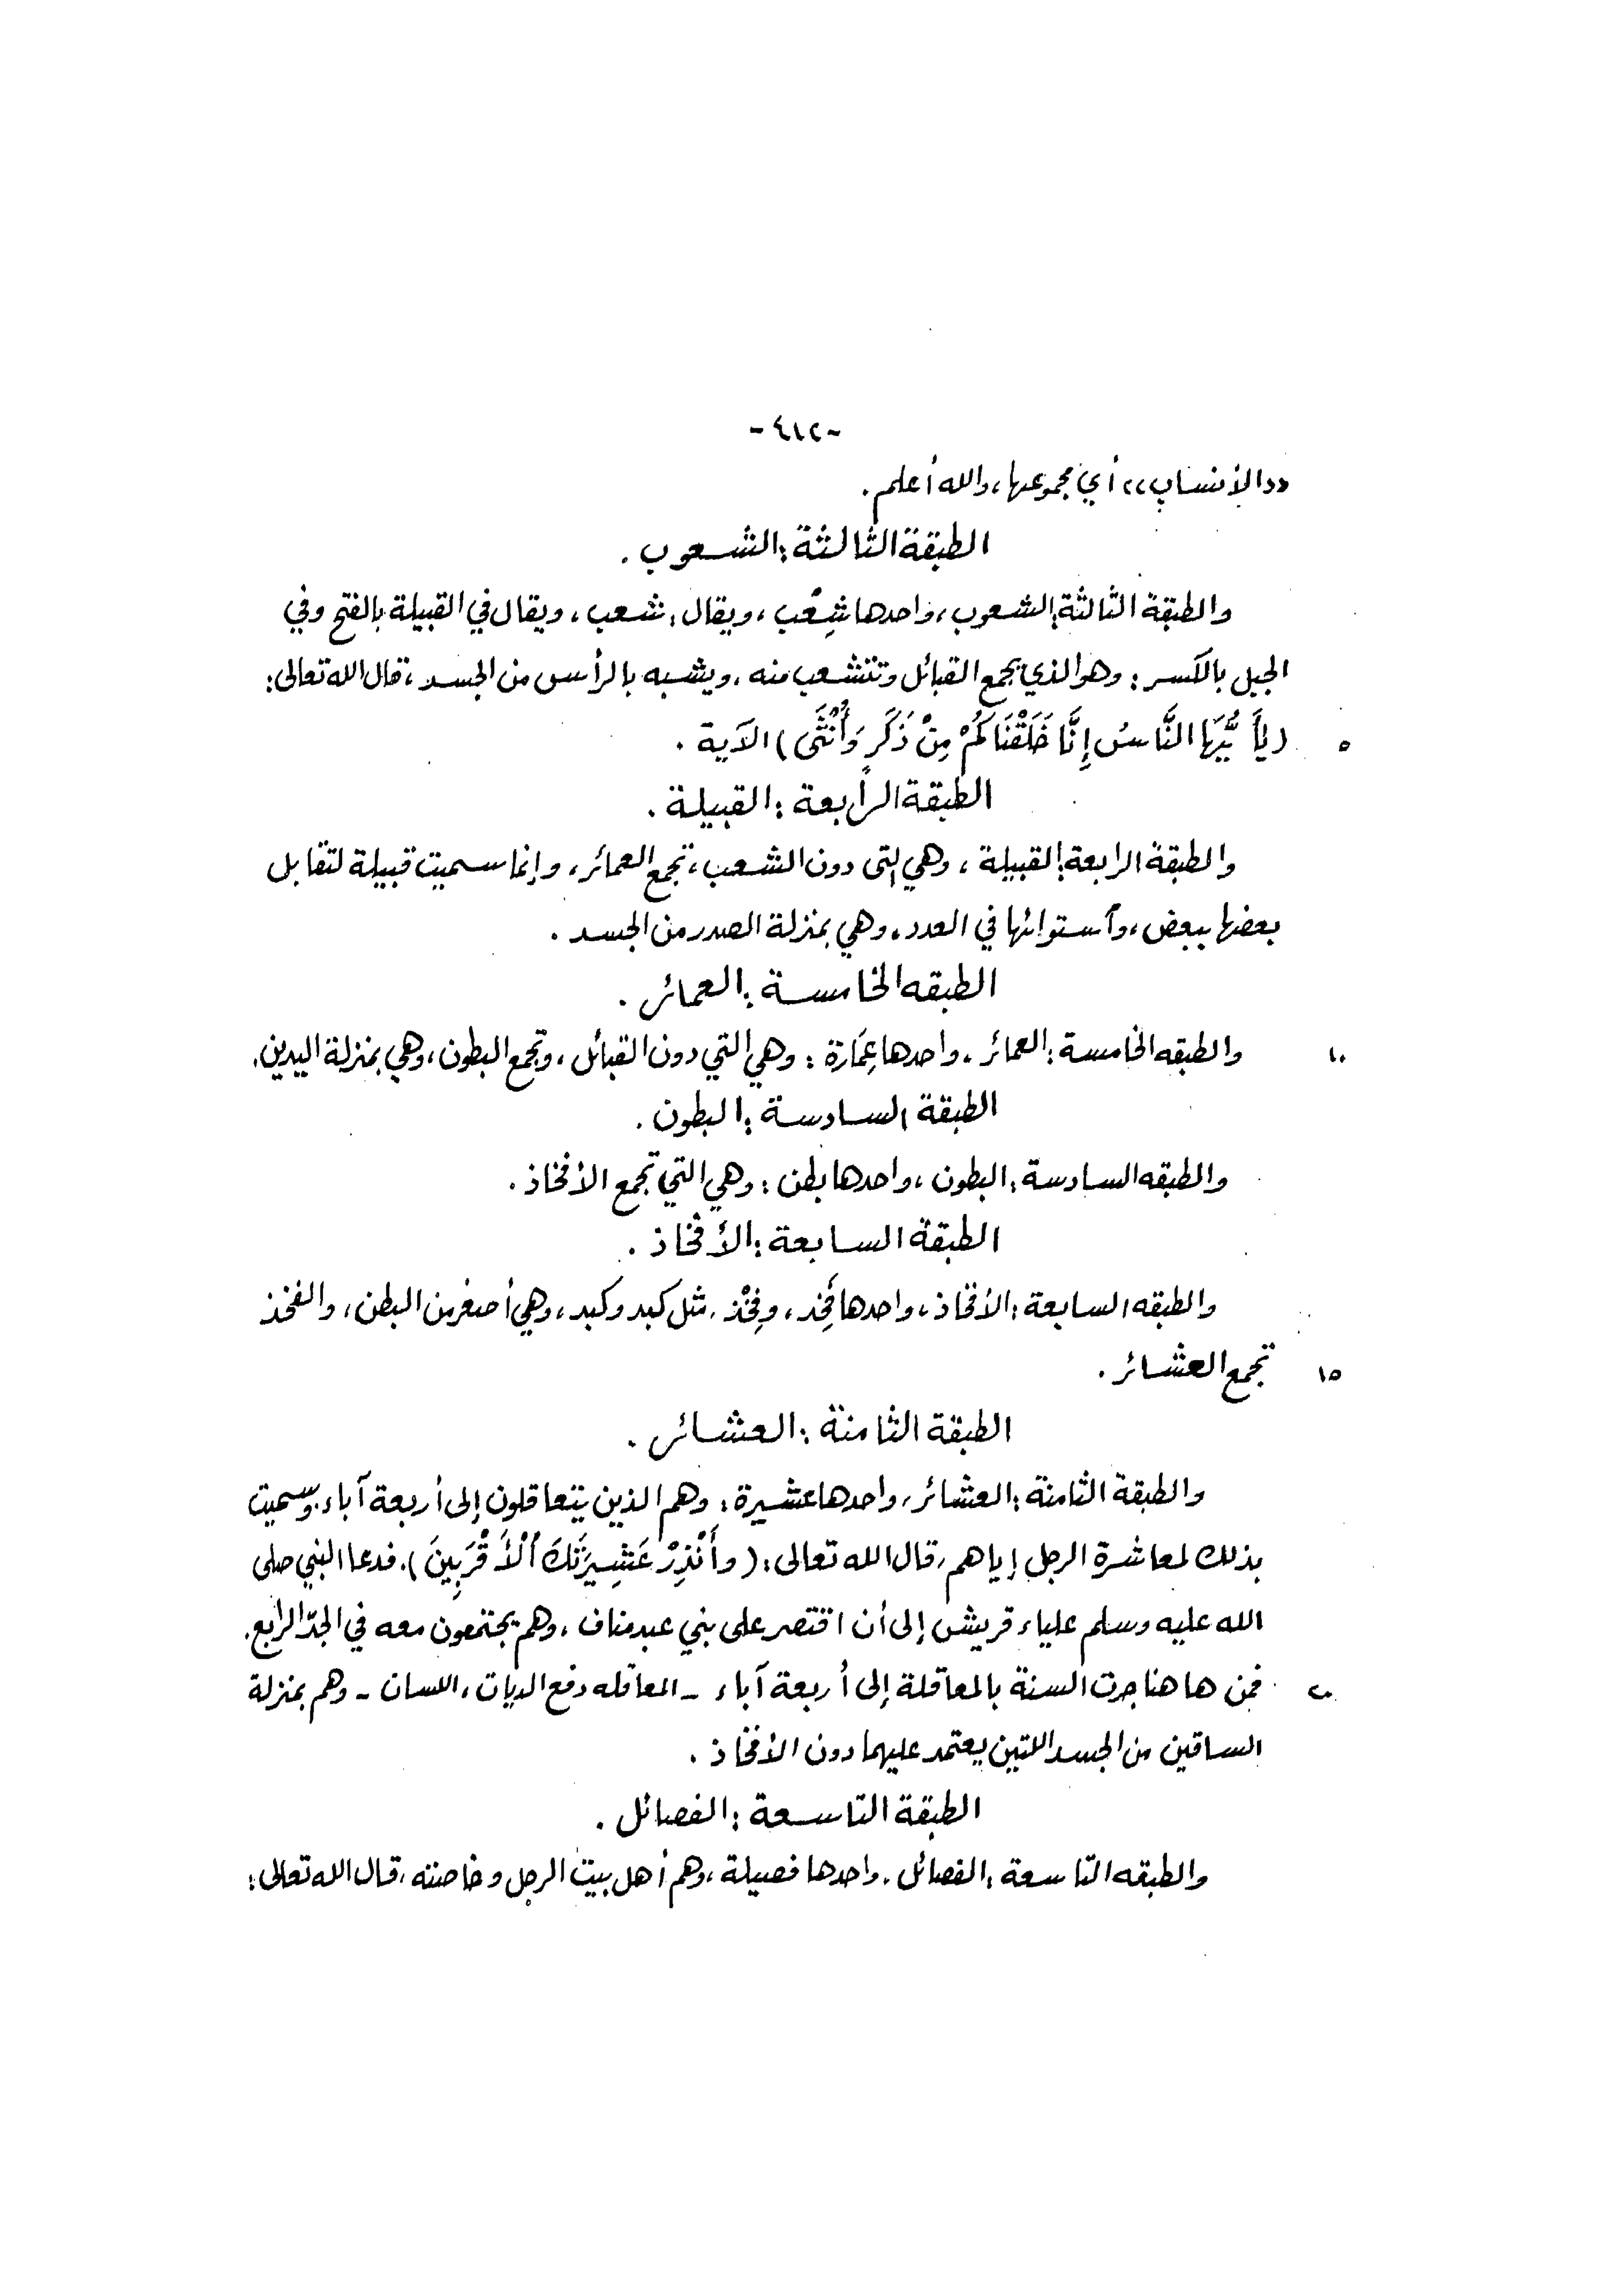 -٤١٢-
«الأنساب» أي مجموعها، والله أعلم.
الطبقة الثالثة: الشعوب.
والطبقة الثالثة: الشعوب، واحدها شِعْب، ويقال: شعب، ويقال في القبيلة بالفتح وفي
الجبل بالكسر: وهو الذي يجمع القبائل وتتشعب منه، ويشبه بالرأس من الجسد، قال الله تعالى:
(يَأَيُّهَا النَّاسُ إِنَّا خَلَقْنَاكُمْ مِنْ ذَكَرٍ وَأُنْثَى) الآية.
٥
الطبقة الرابعة: القبيلة.
والطبقة الرابعة: القبيلة، وهي التى دون الشعب، تجمع العمائر، وإنما سميت قبيلة لتقابل
بعضها ببعض، وآستوائها في العدد، وهي بمنزلة الصدر من الجسد.
الطبقه الخامسة: العمائر.
والطبقه الخامسة: العمائر، واحدها عِمَارة: وهي التي دون القبائل، وتجمع البطون، وهي بمنزلة اليدين.
١٠
الطبقة السادسة: البطون.
والطبقه السادسة: البطون، واحدها بطن: وهي التي تجمع الأفخاذ.
الطبقة السابعة: الأفخاذ.
والطبقه السابعة: الأفخاذ، واحدها فَخِذ، وفِخْذ، مثل كبد وكبد، وهي أصغر من البطن، والفخذ
تجمع العشائر.
١٥
الطبقة الثامنة: العشائر.
والطبقة الثامنة: العشائر، واحدها عشيرة: وهم الذين يتعاقلون إلى أربعة آباء، وسميت
بذلك لمعاشرة الرجل إياهم، قال الله تعالى: (وأَنْذِرْ عَشِيرَتَكَ اْلْأَقْرَبِينَ). فدعا النبي صلى
الله عليه وسلم علياء قريش إلى أن اقتصر على بني عبد مناف، وهم يجتمعون معه في الجدّ الرابع.
فمن هاهنا جرت السنة بالمعاقلة إلى أربعة آباء - المعاقله دفع الديات، اللسان - وهم بمنزلة
٢٠
الساقين من الجسد اللتين يعتمد عليهما دون الأفخاذ.
الطبقة التاسعة: الفصائل.
والطبقه التاسعة: الفصائل، واحدها فصيلة، وهم أهل بيت الرجل وخاصته، قال الله تعالى: